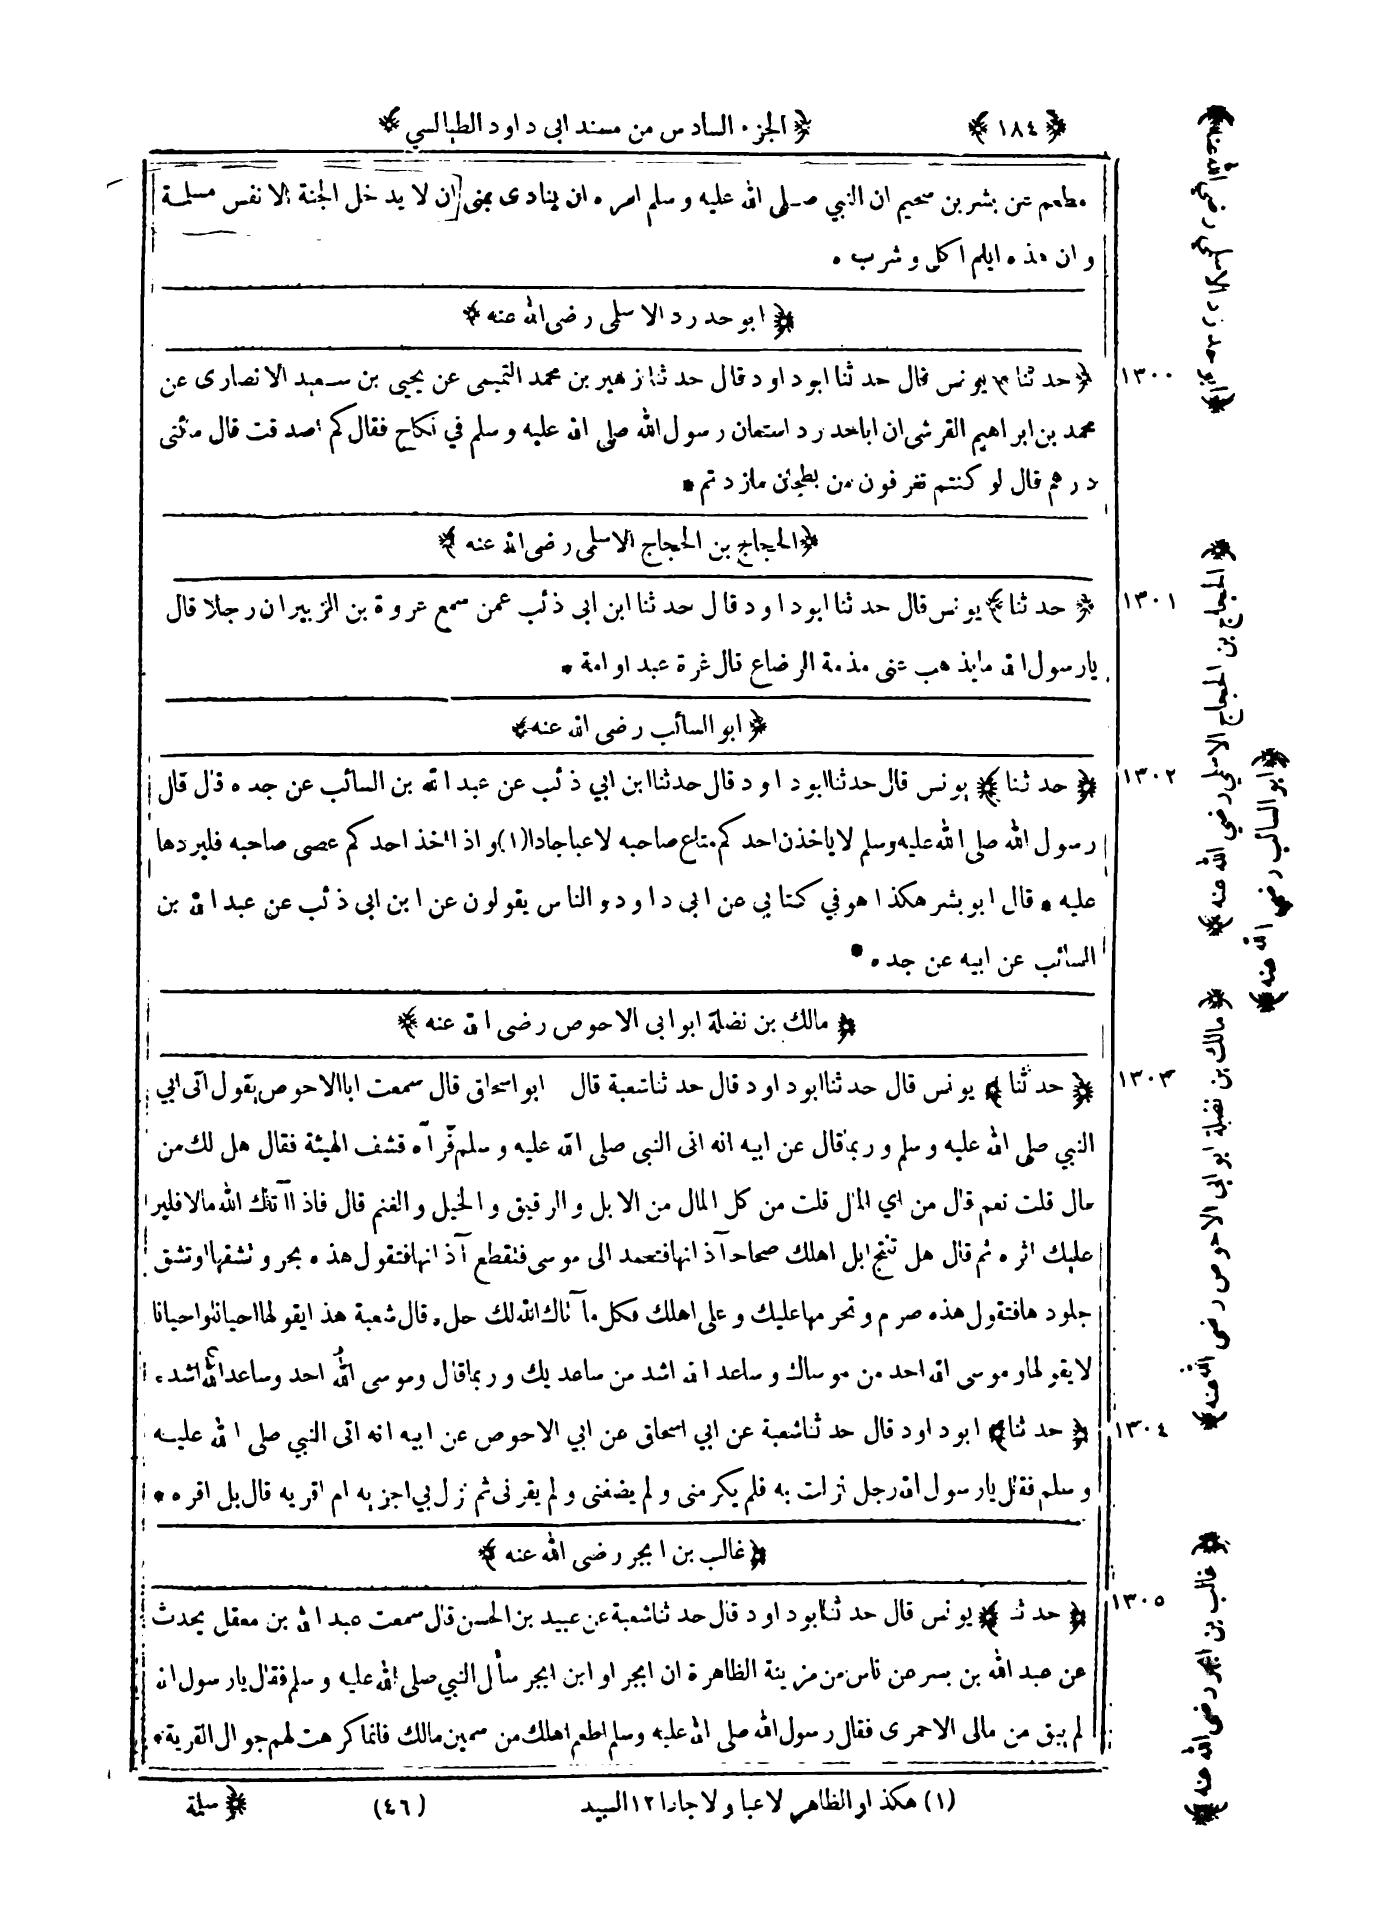 ﴿ ١٨٤ ﴾ ﴿ الجزء السادس من مسند ابى داود الطيالسي ﴾
مطعم عن بشر بن سحيم ان النبي صلى الله عليه وسلم امره ان ينادى بمنى ان لا يدخل الجنة الا نفس مسلمة
و ان هذه ايام اكل و شرب ٭
﴿ ابو حدرد الاسلمى رضى الله عنه ﴾
١٣٠٠ ﴿ حدثنا ﴾ يونس قال حدثنا ابو داود قال حدثنا زهير بن محمد التميمى عن يحيى بن سعيد الانصارى عن
محمد بن ابراهيم القرشى ان ابا حدرد استعان رسول الله صلى الله عليه وسلم في نكاح فقال كم اصدقت قال مائتى
درهم قال لو كنتم تغرفون من بطحان ما زدتم ٭
﴿ الحجاج بن الحجاج الاسلمى رضى الله عنه ﴾
١٣٠١ ﴿ حدثنا ﴾ يونس قال حدثنا ابو داود قال حدثنا ابن ابى ذئب عمن سمع عروة بن الزبير ان رجلا قال
يا رسول الله ما يذهب عنى مذمة الرضاع قال غرة عبد او امة ٭
﴿ ابو السائب رضى الله عنه ﴾
١٣٠٢ ﴿ حدثنا ﴾ يونس قال حدثنا ابو داود قال حدثنا ابن ابي ذئب عن عبد الله بن السائب عن جده قال قال
رسول الله صلى الله عليه وسلم لا ياخذن احدكم متاع صاحبه لاعبا جادا (١) و اذا اخذ احدكم عصى صاحبه فليردها
عليه ٭ قال ابو بشر هكذا هو في كتابي عن ابى داود و الناس يقولون عن ابن ابى ذئب عن عبد الله بن
السائب عن ابيه عن جده ٭
﴿ مالك بن نضلة ابو ابى الاحوص رضى الله عنه ﴾
١٣٠٣ ﴿ حدثنا ﴾ يونس قال حدثنا ابو داود قال حدثنا شعبة قال ابو اسحاق قال سمعت ابا الاحوص يقول اتى ابي
النبي صلى الله عليه و سلم و ربما قال عن ابيه انه اتى النبى صلى الله عليه و سلم فرآه قشف الهيئة فقال هل لك من
مال قلت نعم قال من اي المال قلت من كل المال من الابل و الرقيق و الخيل و الغنم قال فاذا آتاك الله مالا فلير
عليك اثره ثم قال هل تنتج ابل اهلك صحاحا آذانها فتعمد الى موسى فتقطع آذانها فتقول هذه بحر و تشقها او تشق
جلودها فتقول هذه صرم و تحرمها عليك و على اهلك فكل ما آتاك الله لك حل ٭ قال شعبة هذا يقولها احيانا و احيانا
لا يقولها و موسى الله احد من موساك و ساعد الله اشد من ساعديك و ربما قال وموسى الله احد وساعد الله اشد ٭
١٣٠٤ ﴿ حدثنا ﴾ ابو داود قال حدثنا شعبة عن ابي اسحاق عن ابي الاحوص عن ابيه انه اتى النبي صلى الله عليه
و سلم فقال يا رسول الله رجل نزلت به فلم يكرمنى و لم يضفنى و لم يقرنى ثم نزل بي اجزيه ام اقريه قال بل اقره ٭
﴿ غالب بن ابجر رضى الله عنه ﴾
١٣٠٥ ﴿ حدثنا ﴾ يونس قال حدثنا ابو داود قال حدثنا شعبة عن عبيد بن الحسن قال سمعت عبد الله بن معقل يحدث
عن عبد الله بن بسر عن ناس من مزينة الظاهرة ان ابجر او ابن ابجر سأل النبي صلى الله عليه و سلم فقال يا رسول الله
لم يبق من مالى الا حمرى فقال رسول الله صلى الله عليه وسلم اطعم اهلك من سمين مالك فانما كرهت لهم جوال القرية ٭
(١) هكذا و الظاهر لا عبا و لا جادا ١٢ السيد (٤٦) ﴿ سلمة
﴿ ابو حدرد الاسلمي رضي الله عنه ﴾
﴿ الحجاج بن الحجاج الاسلمي رضي الله عنه ﴾
﴿ ابو السائب رضي الله عنه ﴾
﴿ مالك بن نضلة ابو ابى الاحوص رضى الله عنه ﴾
﴿ غالب بن ابجر رضى الله عنه ﴾